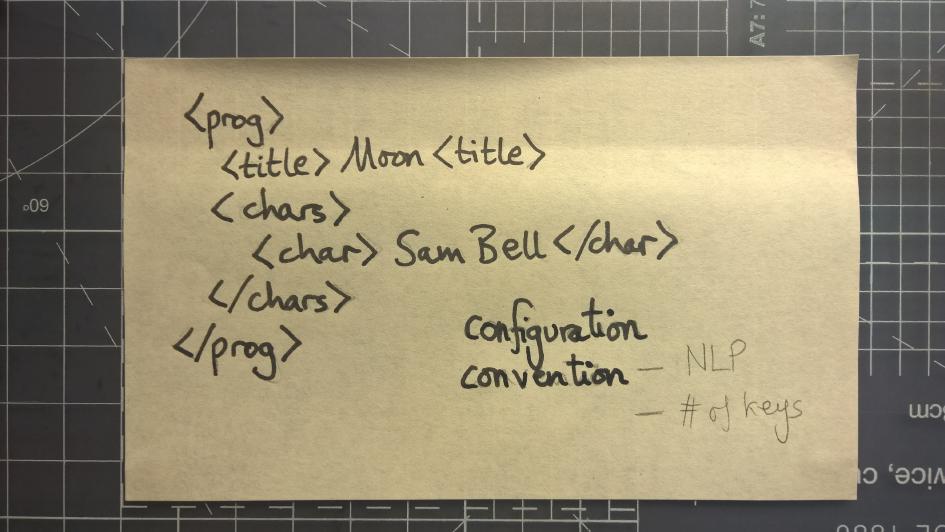 A7:7
60°
<prog>
<title> Moon <title>
<chars>
<char> Sam Bell </char>
</chars>
</prog>
configuration
convention — NLP
— # of keys